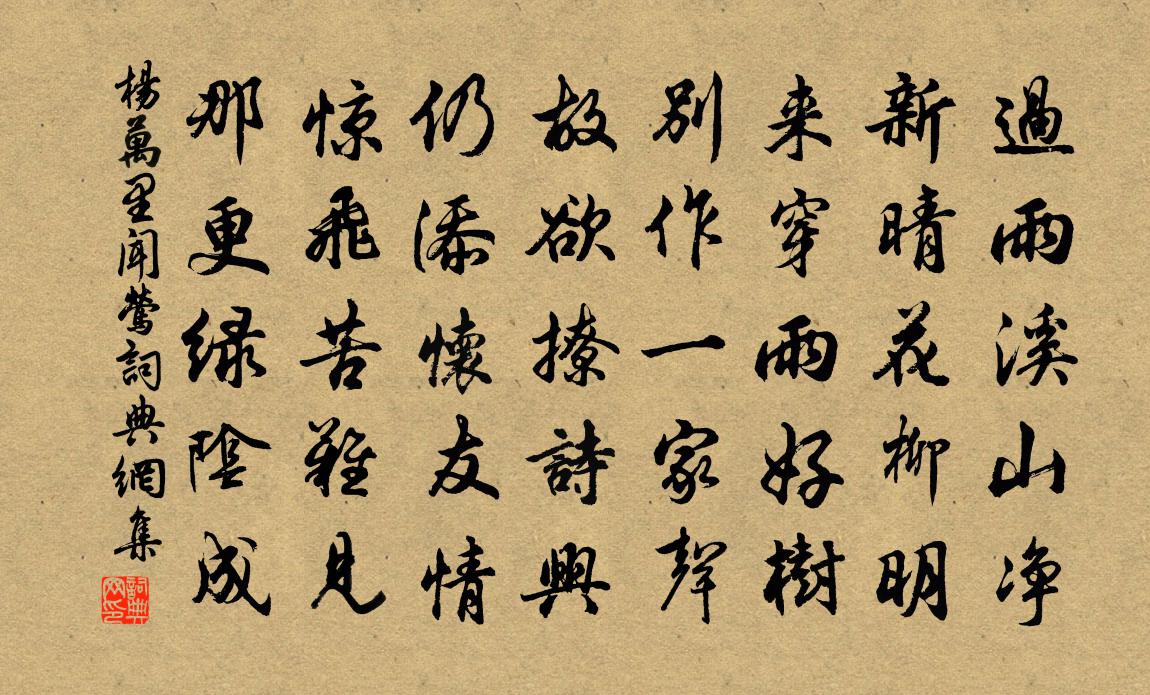 過雨溪山净
新晴花柳明
来穿兩好樹
别作一家聲
故欲撩詩興
仍添懷友情
惊飛苦難見
那更緑陰成
楊萬里聞鶯詞典網集
詞典网印